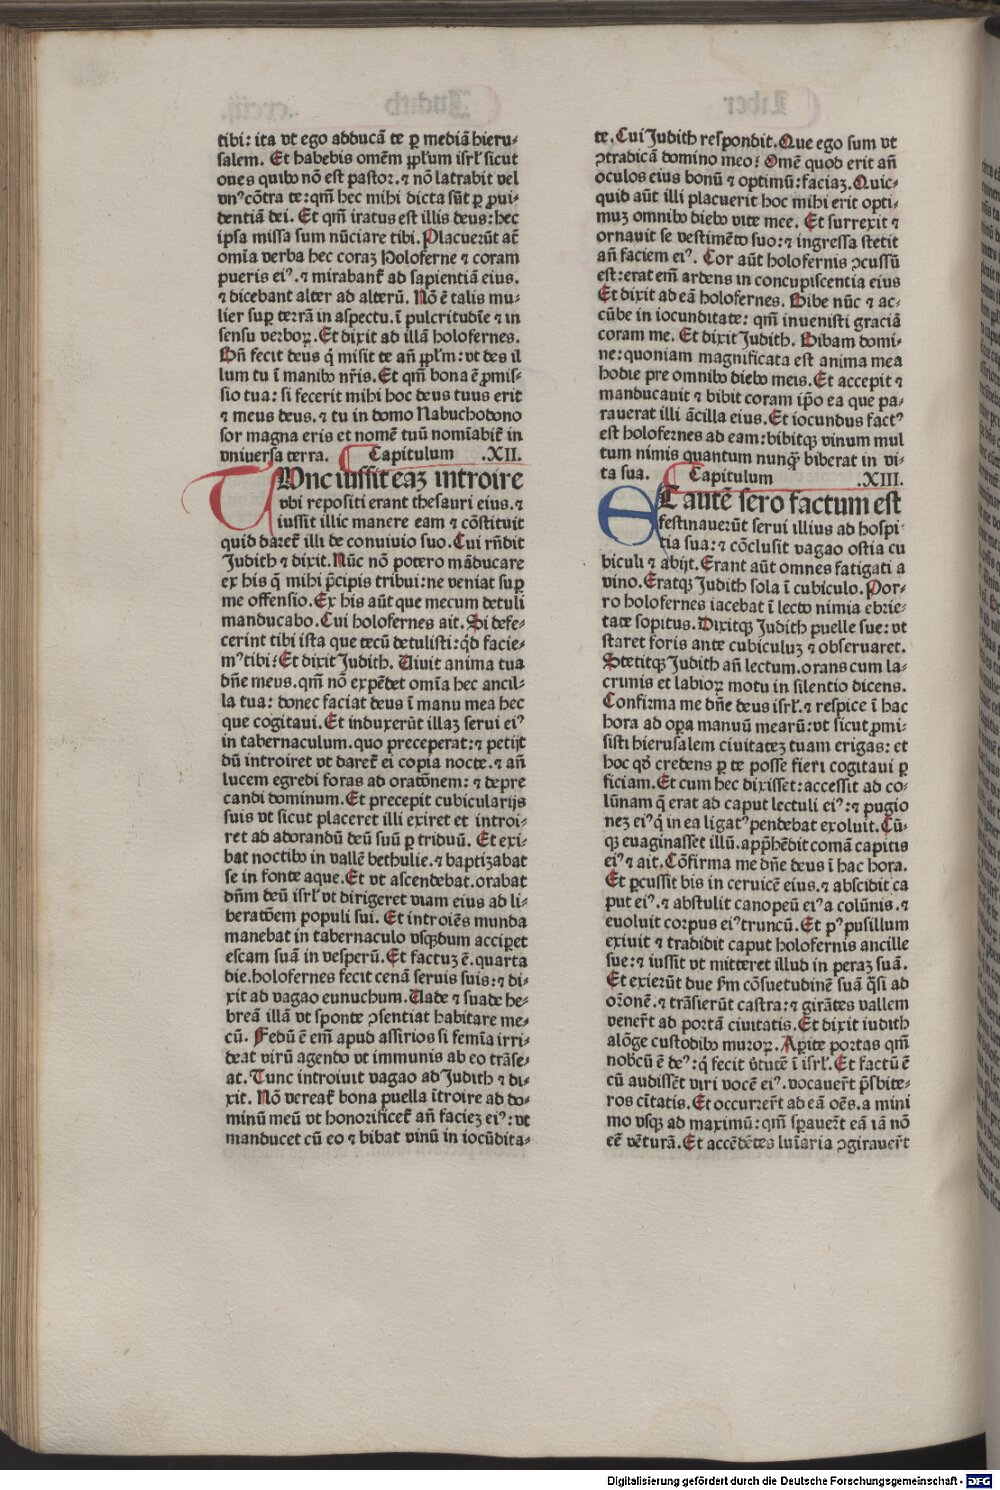 tibi: ita vt ego adducā te ꝑ mediā hieru⸗
salem. Et habebis omēm ppl̄um isrl̄ sicut
oues quibꝰ nō est pastor. ⁊ nō latrabit vel
vnꝰ cōtra te: qm̄ hec mihi dicta sūt ꝑ ꝓui⸗
dentiā dei. Et qm̄ iratus est illis deus: hec
ipsa missa sum nūciare tibi. Placuerūt at̄
om̄ia verba hec coraꝫ Holoferne ⁊ coram
pueris eiꝰ. ⁊ mirabant̄ ad sapientiā eius.
⁊ dicebant alter ad alterū. Nō ē talis mu⸗
lier suꝑ terrā in aspectu. ī pulcritudīe ⁊ in
sensu verboꝝ. Et dixit ad illā holofernes.
Bn̄ fecit deus q̇ misit te an̄ ppl̄m: vt des il
lum tu ī manibꝰ nr̄is. Et qm̄ bona ē ꝓmis⸗
sio tua: si fecerit mihi hoc deus tuus erit
⁊ meus deus. ⁊ tu in domo Nabuchodono
sor magna eris et nomē tuū nomīabit̄ in
vniuersa terra. Capitulum .XII.
TVnc iussit eaꝫ introire
vbi repositi erant thesauri eius. ⁊
iussit illic manere eam ⁊ cōstituit
quid daret̄ illi de conuiuio suo. Cui rn̄dit
Judith ⁊ dixit. Nūc nō potero māducare
ex his q̄ mihi p̄cipis tribui: ne veniat suꝑ
me offensio. Ex his aūt que mecum detuli
manducabo. Cui holofernes ait. Si defe⸗
cerint tibi ista que tecū detulisti: qd̄ facie⸗
mꝰ tibi? Et dixit Judith. Viuit anima tua
dn̄e meus. qm̄ nō expēdet om̄ia hec ancil⸗
la tua: donec faciat deus ī manu mea hec
que cogitaui. Et induxerūt illaꝫ serui eiꝰ
in tabernaculum. quo preceperat: ⁊ petijt
dū introiret vt daret̄ ei copia nocte. ⁊ an̄
lucem egredi foras ad oratōnem: ⁊ depre
candi dominum. Et precepit cubicularijs
suis vt sicut placeret illi exiret et introi⸗
ret ad adorandū deū suū ꝑ triduū. Et exi⸗
bat noctibꝰ in vallē bethulie. ⁊ baptizabat
se in fonte aque. Et vt ascendebat. orabat
dn̄m deū isrl̄ vt dirigeret viam eius ad li⸗
beratōem populi sui. Et introiēs munda
manebat in tabernaculo vsq̄dum acciꝑet
escam suā in vesperū. Et factuꝫ ē. quarta
die. holofernes fecit cenā seruis suis: ⁊ di⸗
xit ad vagao eunuchum. Vade ⁊ suade he⸗
breā illā vt sponte ꝯsentiat habitare me⸗
cū. Fedū ē em̄ apud assirios si femīa irri⸗
deat virū agendo vt immunis ab eo trāse⸗
at. Tunc introiuit vagao ad Judith ⁊ di⸗
xit. Nō vereat̄ bona puella ītroire ad do⸗
minū meū vt honorificet̄ an̄ facieꝫ eiꝰ: vt
manducet cū eo ⁊ bibat vinū in iocūdita⸗
te. Cui Judith respondit. Que ego sum vt
ꝯtradicā domino meo? Omē quod erit an̄
oculos eius bonū ⁊ optimū: faciaꝫ. Quic⸗
quid aūt illi placuerit hoc mihi erit opti⸗
muꝫ omnibꝰ diebꝰ vite mee. Et surrexit ⁊
ornauit se vestimēto suo: ⁊ ingressa stetit
an̄ faciem eiꝰ. Cor aūt holofernis ꝯcussū
est: erat em̄ ardens in concupiscentia eius
Et dixit ad eā holofernes. Bibe nūc ⁊ ac⸗
cūbe in iocunditate: qm̄ inuenisti graciā
coram me. Et dixit Judith. Bibam domi⸗
ne: quoniam magnificata est anima mea
hodie pre omnibꝰ diebꝰ meis. Et accepit ⁊
manducauit ⁊ bibit coram ip̄o ea que pa⸗
rauerat illi ācilla eius. Et iocundus factꝰ
est holofernes ad eam: bibitqꝫ vinum mul
tum nimis quantum nunq̄ biberat in vi⸗
ta sua. Capitulum .XIII.
ET autē sero factum est
festinauerūt serui illius ad hospi⸗
tia sua: ⁊ cōclusit vagao ostia cu
biculi ⁊ abijt. Erant aūt omnes fatigati a
vino. Eratqꝫ Judith sola ī cubiculo. Por⸗
ro holofernes iacebat ī lecto nimia ebrie⸗
tate sopitus. Dixitqꝫ Judith puelle sue: vt
staret foris ante cubiculuꝫ ⁊ obseruaret.
Stetitqꝫ Judith an̄ lectum. orans cum la⸗
crimis et labioꝝ motu in silentio dicens.
Confirma me dn̄e deus isrl̄. ⁊ respice ī hac
hora ad oꝑa manuū mearū: vt sicut ꝓmi⸗
sisti hierusalem ciuitateꝫ tuam erigas: et
hoc qd̄ credens ꝑ te posse fieri cogitaui ꝑ
ficiam. Et cum hec dixisset: accessit ad co⸗
lūnam q̄ erat ad caput lectuli eiꝰ: ⁊ pugio
neꝫ eiꝰ q̇ in ea ligatꝰ pendebat exoluit. Cū⸗
qꝫ euaginasset illū. app̄hēdit comā capitis
eiꝰ ⁊ ait. Cōfirma me dn̄e deus ī hac hora.
Et ꝑcussit bis in ceruicē eius. ⁊ abscidit ca
put eiꝰ. ⁊ abstulit canopeū eiꝰ a colūnis. ⁊
euoluit corpus eiꝰ truncū. Et pꝰ pusillum
exiuit ⁊ tradidit caput holofernis ancille
sue: ⁊ iussit vt mitteret illud in peraꝫ suā.
Et exierūt due ẜm cōsuetudinē suā q̄si ad
or̄onē. ⁊ trāsierūt castra: ⁊ girātes vallem
vener̄t ad portā ciuitatis. Et dixit iudith
alōge custodibꝰ muroꝝ. Aꝑite portas qm̄
nobcū ē deꝰ: q̇ fecit v̄tutē ī isrl̄. Et factū ē
cū audissēt viri vocē eiꝰ. vocauer̄t p̄sbite⸗
ros cītatis. Et occurrer̄t ad eā oēs. a mini
mo vsqꝫ ad maximū: qm̄ sꝑauer̄t eā iā nō
eē vēturā. Et accēdētes luīaria ꝯgirauer̄t
Digitalisierung gefördert durch die Deutsche Forschungsgemeinschaft - DFG